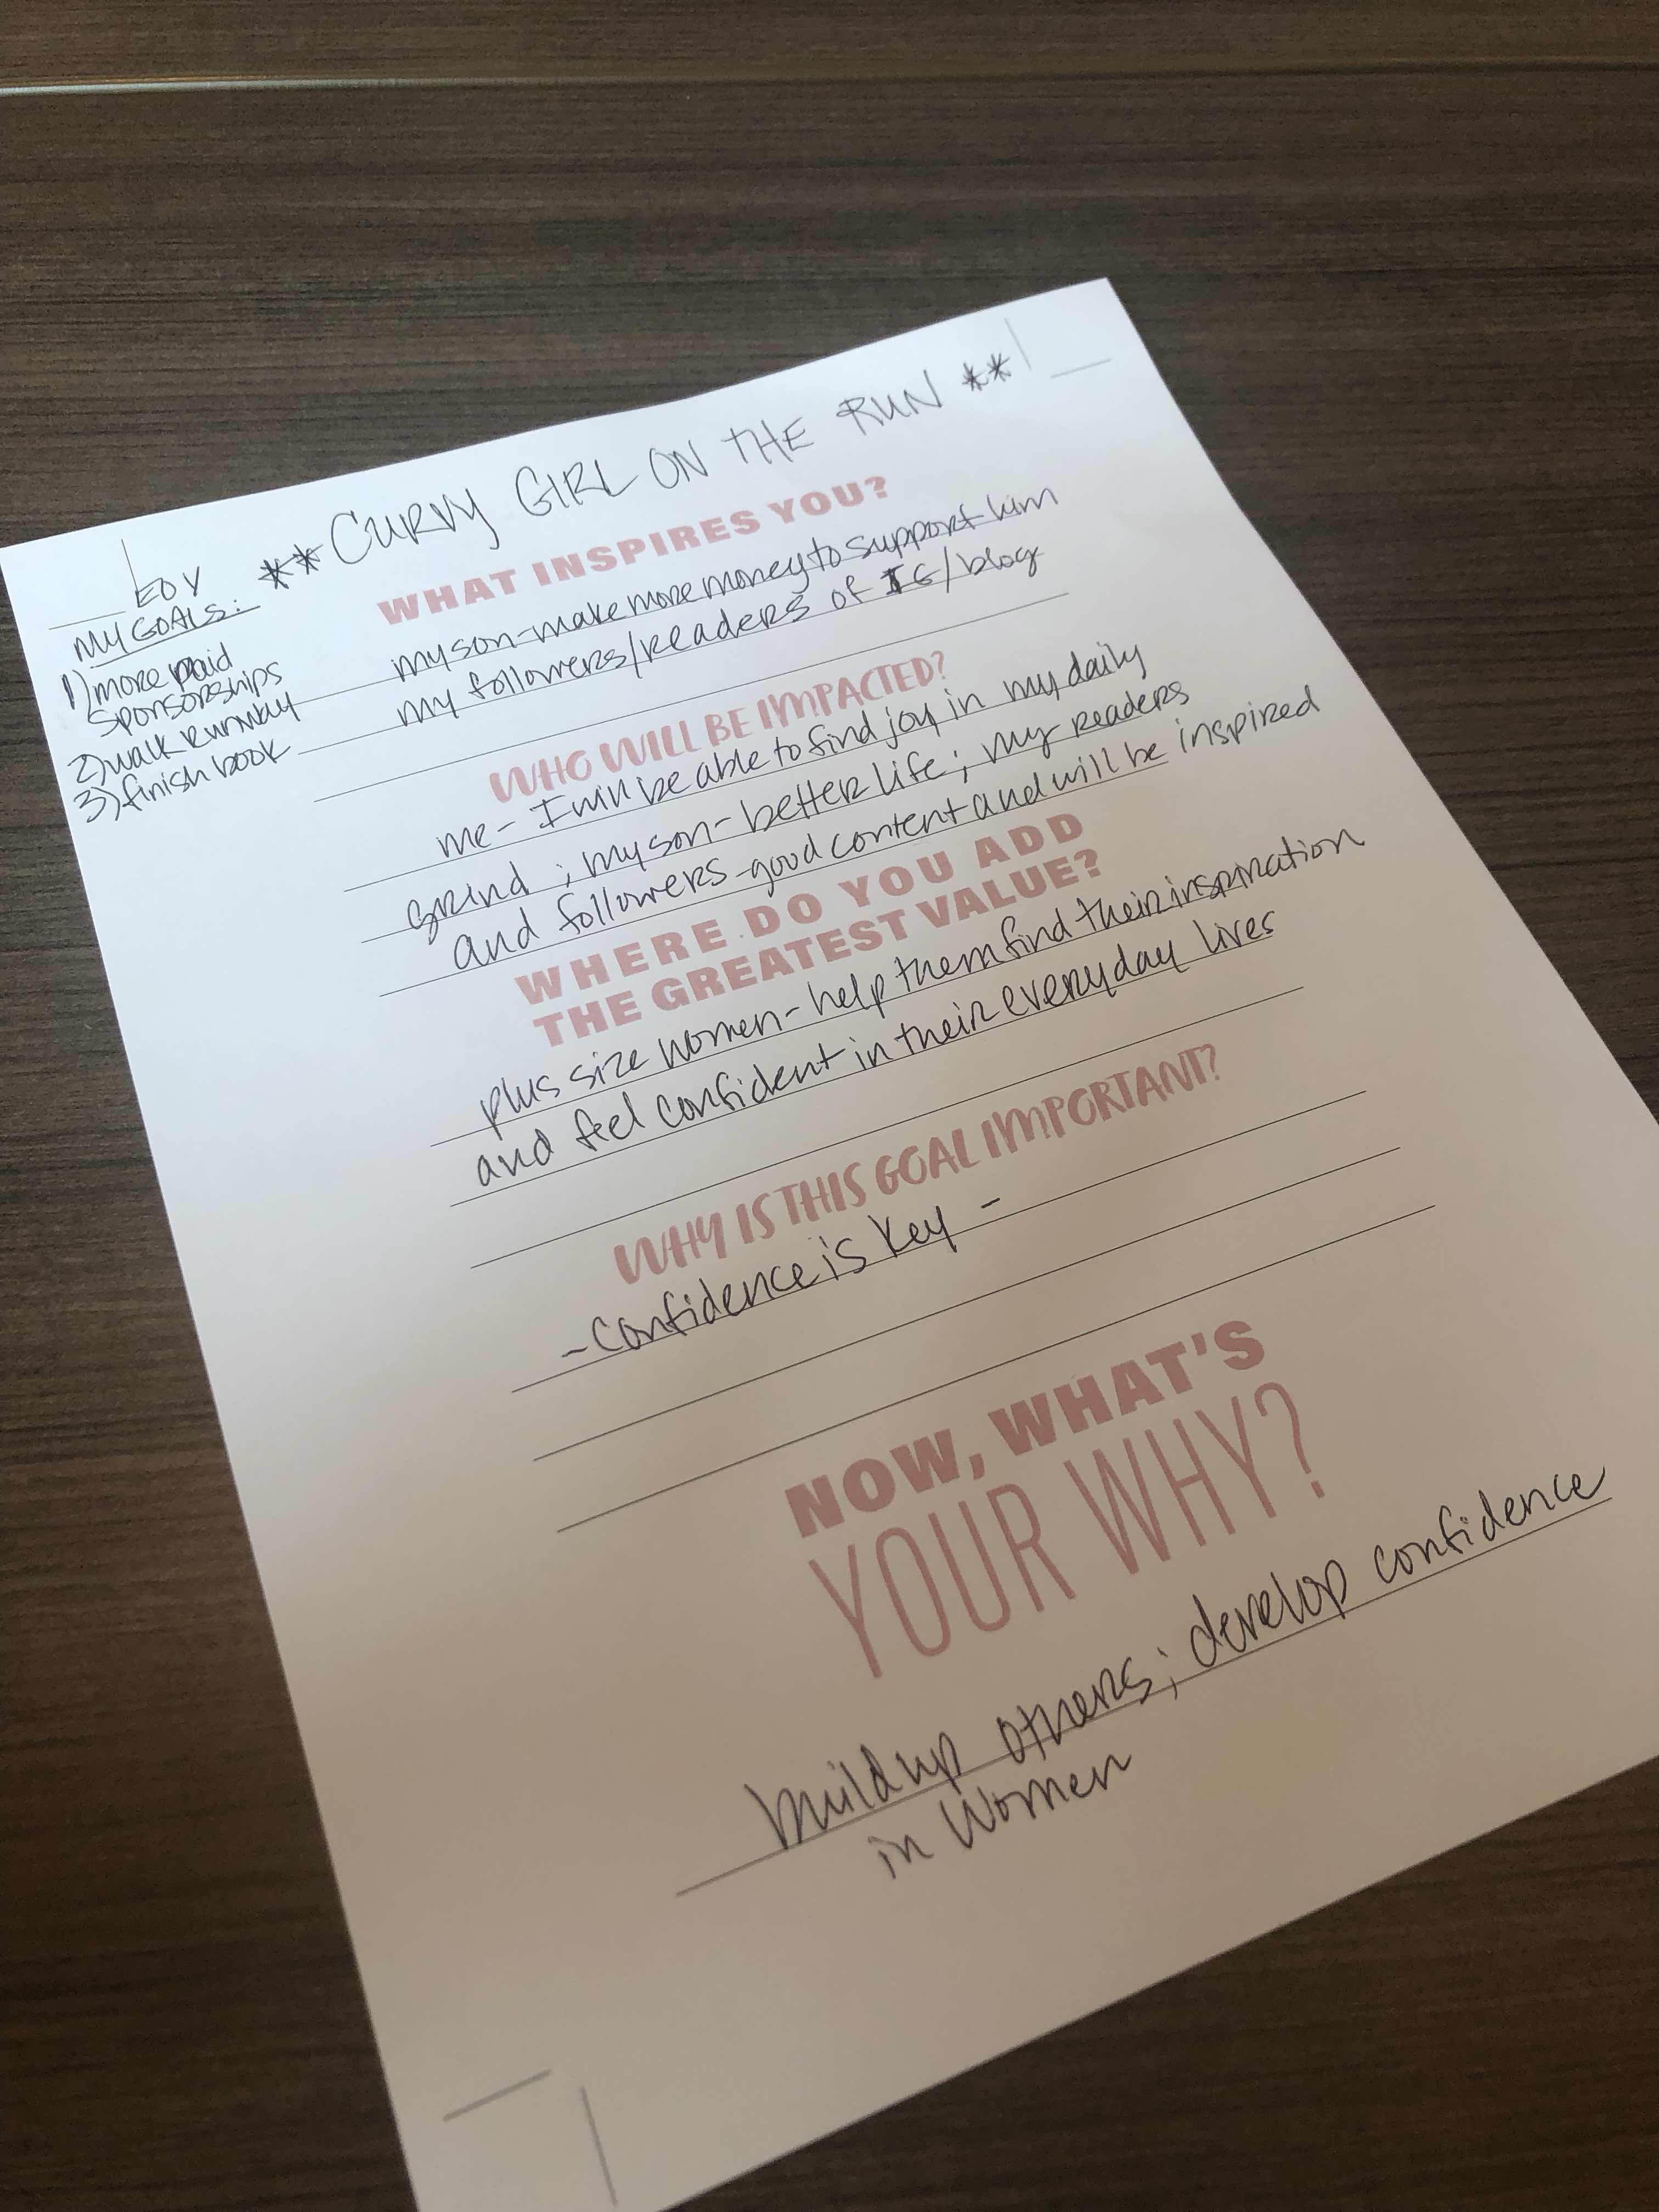 **CURVY GIRL ON THE RUN**
EOY
MY GOALS:
1) more paid
sponsorships
2) walk runway
3) finish book
WHAT INSPIRES YOU?
my son - make more money to support him
my followers/readers of IG/blog
WHO WILL BE IMPACTED?
me - I will be able to find joy in my daily
grind; my son - better life; my readers
and followers - good content and will be inspired
WHERE DO YOU ADD
THE GREATEST VALUE?
plus size women - help them find their inspiration
and feel confident in their everyday lives
WHY IS THIS GOAL IMPORTANT?
- Confidence is key -
NOW, WHAT'S
YOUR WHY?
build up others; develop confidence
in women